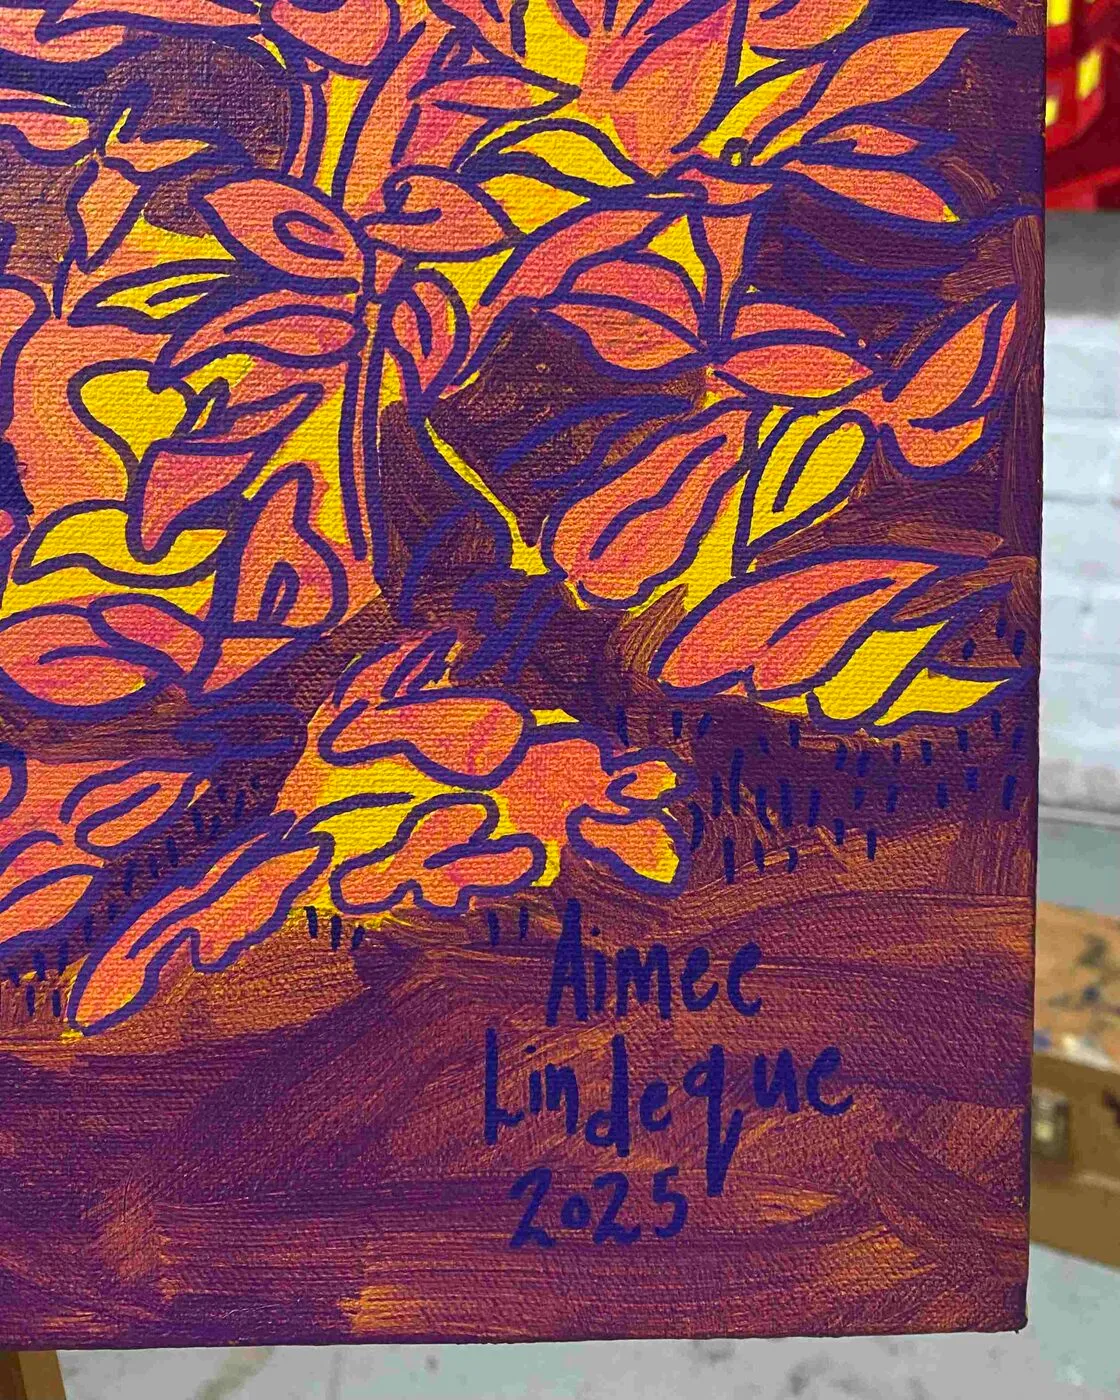 Aimee
Lindeque
2025